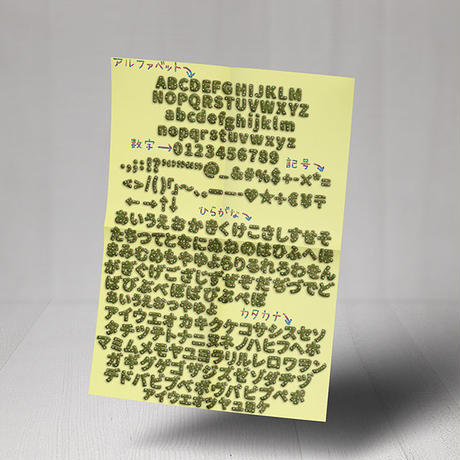 アルファベット
ABCDEFGHIJKLM
NOPQRSTUVWXYZ
abcdefghijklm
nopqrstuvwxyz
数字→0123456789
記号
@_&#%$+-×*=
<>/()「」
♥☆+€¥〒
←→↑↓
ひらがな
あいうえおかきくけこさしすせそ
たちつてとなにぬねのはひふへほ
まみむめもやゆよらりるれろわをん
がぎぐげござじずぜぞだぢづでど
ばびぶべぼぱぴぷぺぽ
ぁぃぅぇぉっゃゅょ
カタカナ
アイウエオカキクケコサシスセソ
タチツテトナニヌネノハヒフヘホ
マミムメモヤユヨラリルレロワヲン
ガギグゲゴザジズゼゾダヂヅ
デドバビブベボヴパピプペポ
ァィゥェォッャュョヶ